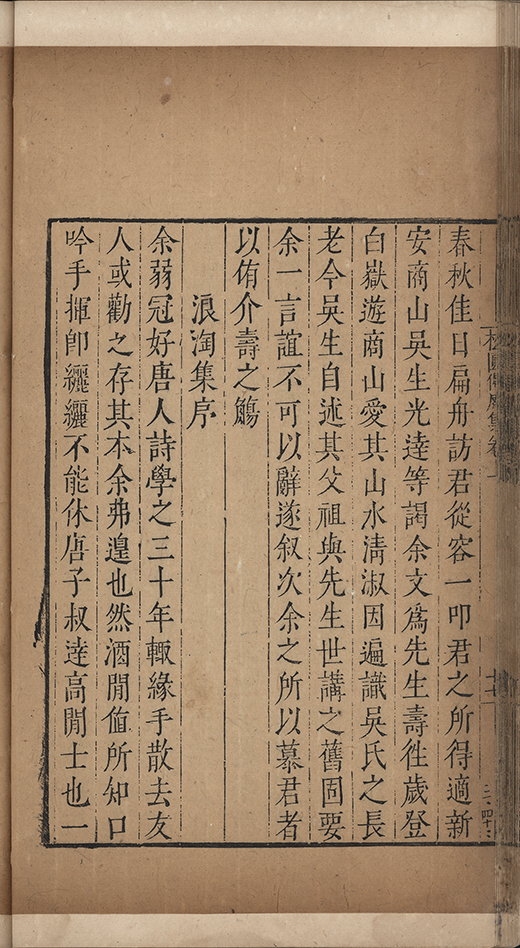 春秋佳日扁舟訪君從容一叩君之所得適新
安商山吳生光逹等謁余文爲先生壽徃歲登
白嶽遊商山愛其山水清淑因遍識吳氏之長
老今吳生自述其父祖與先生世講之舊固要
余一言誼不可以辭遂叙次余之所以慕君者
以侑介壽之觴
浪淘集序
余弱冠好唐人詩學之三十年輙緣手散去友
人或勸之存其本余弗遑也然酒閒值所知口
吟手揮卽纚纚不能休唐子叔逹高閒士也一